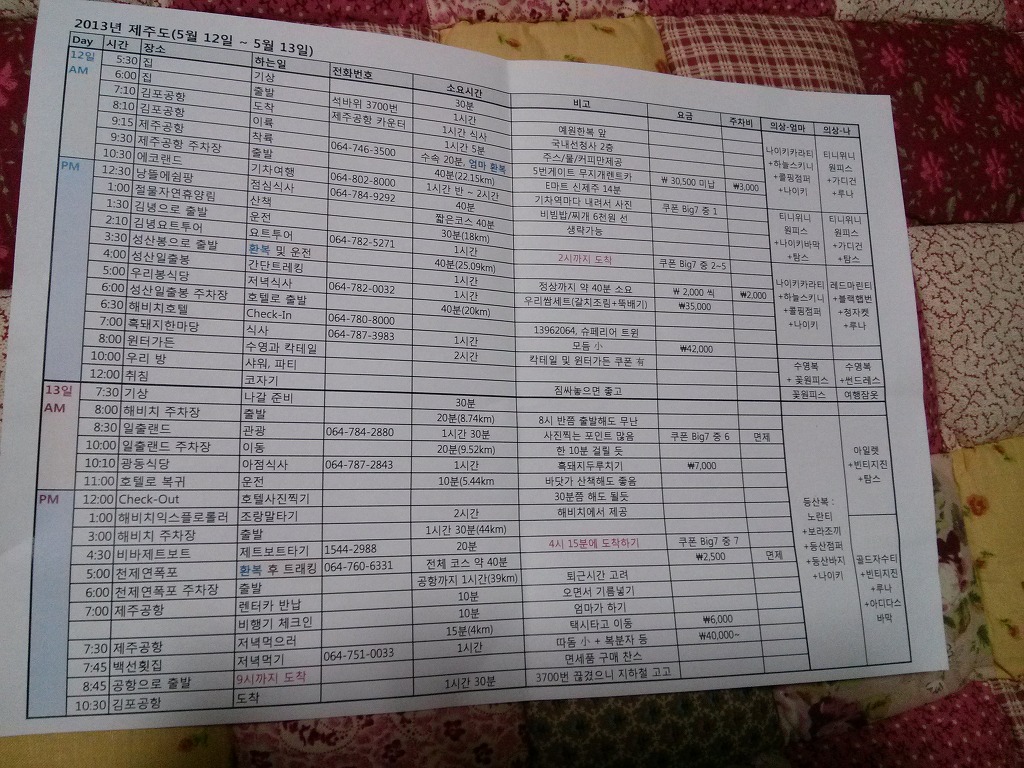 2013년 제주도(5월 12일 ~ 5월 13일)
Day 시간 장소 하는일 전화번호 소요시간 비고 요금 주차비 의상-엄마 의상-나
12일 AM
5:30 집 기상 30분
6:00 집 출발 석바위 3700번 1시간 예원한복 앞
7:10 김포공항 도착 제주공항 카운터 1시간 식사 국내선청사 2층
8:10 김포공항 이륙 1시간 5분 주스/물/커피만제공
9:15 제주공항 착륙 064-746-3500 수속 20분, 엄마 환복 5번게이트 무지개렌트카 ₩ 30,500 미납 ₩3,000
9:30 제주공항 주차장 출발 40분(22.15km) E마트 신제주 14분
10:30 에코랜드 기차여행 064-802-8000 1시간 반 ~ 2시간 기차역마다 내려서 사진 쿠폰 Big7 중 1
PM
12:30 낭뜰에쉼팡 점심식사 064-784-9292 40분 비빔밥/찌개 6천원 선
1:00 절물자연휴양림 산책 짧은코스 40분 생략가능
1:30 김녕으로 출발 운전 30분(18km)
2:10 김녕요트투어 요트투어 064-782-5271 1시간 2시까지 도착 쿠폰 Big7 중 2~5
3:30 성산봉으로 출발 환복 및 운전 40분(25.09km)
4:00 성산일출봉 간단트레킹 1시간 정상까지 약 40분 소요 ₩ 2,000 씩 ₩2,000
5:00 우리봉식당 저녁식사 064-782-0032 1시간 우리쌈세트(갈치조림+뚝배기) ₩35,000
6:00 성산일출봉 주차장 호텔로 출발 40분(20km)
6:30 해비치호텔 Check-In 064-780-8000 13962064, 슈페리어 트윈
7:00 흑돼지한마당 식사 064-787-3983 1시간 모듬 小 ₩42,000
8:00 윈터가든 수영과 칵테일 2시간 칵테일 및 윈터가든 쿠폰 有
10:00 우리 방 샤워, 파티
12:00 취침 코자기 짐싸놓으면 좋고
나이키카라티
+하늘스키니
+콜핑점퍼
+나이키
티니위니
원피스
+가디건
+루나
티니위니
원피스
+나이키바막
+탐스
티니위니
원피스
+가디건
+탐스
나이키카라티
+하늘스키니
+콜핑점퍼
+나이키
레드마린티
+블랙햅번
+청자켓
+루나
수영복
+ 꽃원피스
수영복
+썬드레스
꽃원피스 여행잠옷
13일 AM
7:30 기상 나갈 준비 30분
8:00 해비치 주차장 출발 20분(8.74km) 8시 반쯤 출발해도 무난
8:30 일출랜드 관광 064-784-2880 1시간 30분 사진찍는 포인트 많음 쿠폰 Big7 중 6 면제
10:00 일출랜드 주차장 이동 20분(9.52km) 한 10분 걸릴 듯
10:10 광동식당 아점식사 064-787-2843 1시간 흑돼지두루치기 ₩7,000
11:00 호텔로 복귀 운전 10분(5.44km 바닷가 산책해도 좋음
PM
12:00 Check-Out 호텔사진찍기 30분쯤 해도 될듯
1:00 해비치익스플로롤러 조랑말타기 2시간 해비치에서 제공
3:00 해비치 주차장 출발 1시간 30분(44km)
4:30 비바제트보트 제트보트타기 1544-2988 20분 4시 15분에 도착하기 쿠폰 Big7 중 7
5:00 천제연폭포 환복 후 트래킹 064-760-6331 전체 코스 약 40분 ₩2,500 면제
6:00 천제연폭포 주차장 출발 공항까지 1시간(39km) 퇴근시간 고려
7:00 제주공항 렌터카 반납 10분 오면서 기름넣기
비행기 체크인 10분 엄마가 하기
7:30 제주공항 저녁먹으러 15분(4km) 택시타고 이동 ₩6,000
7:45 백선횟집 저녁먹기 064-751-0033 1시간 따돔 小 + 복분자 등 ₩40,000~
8:45 공항으로 출발 9시까지 도착 면세품 구매 찬스
10:30 김포공항 도착 1시간 30분 3700번 끊겼으니 지하철 고고
등산복 :
노란티
+보라조끼
+등산점퍼
+등산바지
+나이키
아일렛
+빈티지진
+탐스
골드자수티
+빈티지진
+루나
+아디다스
바막